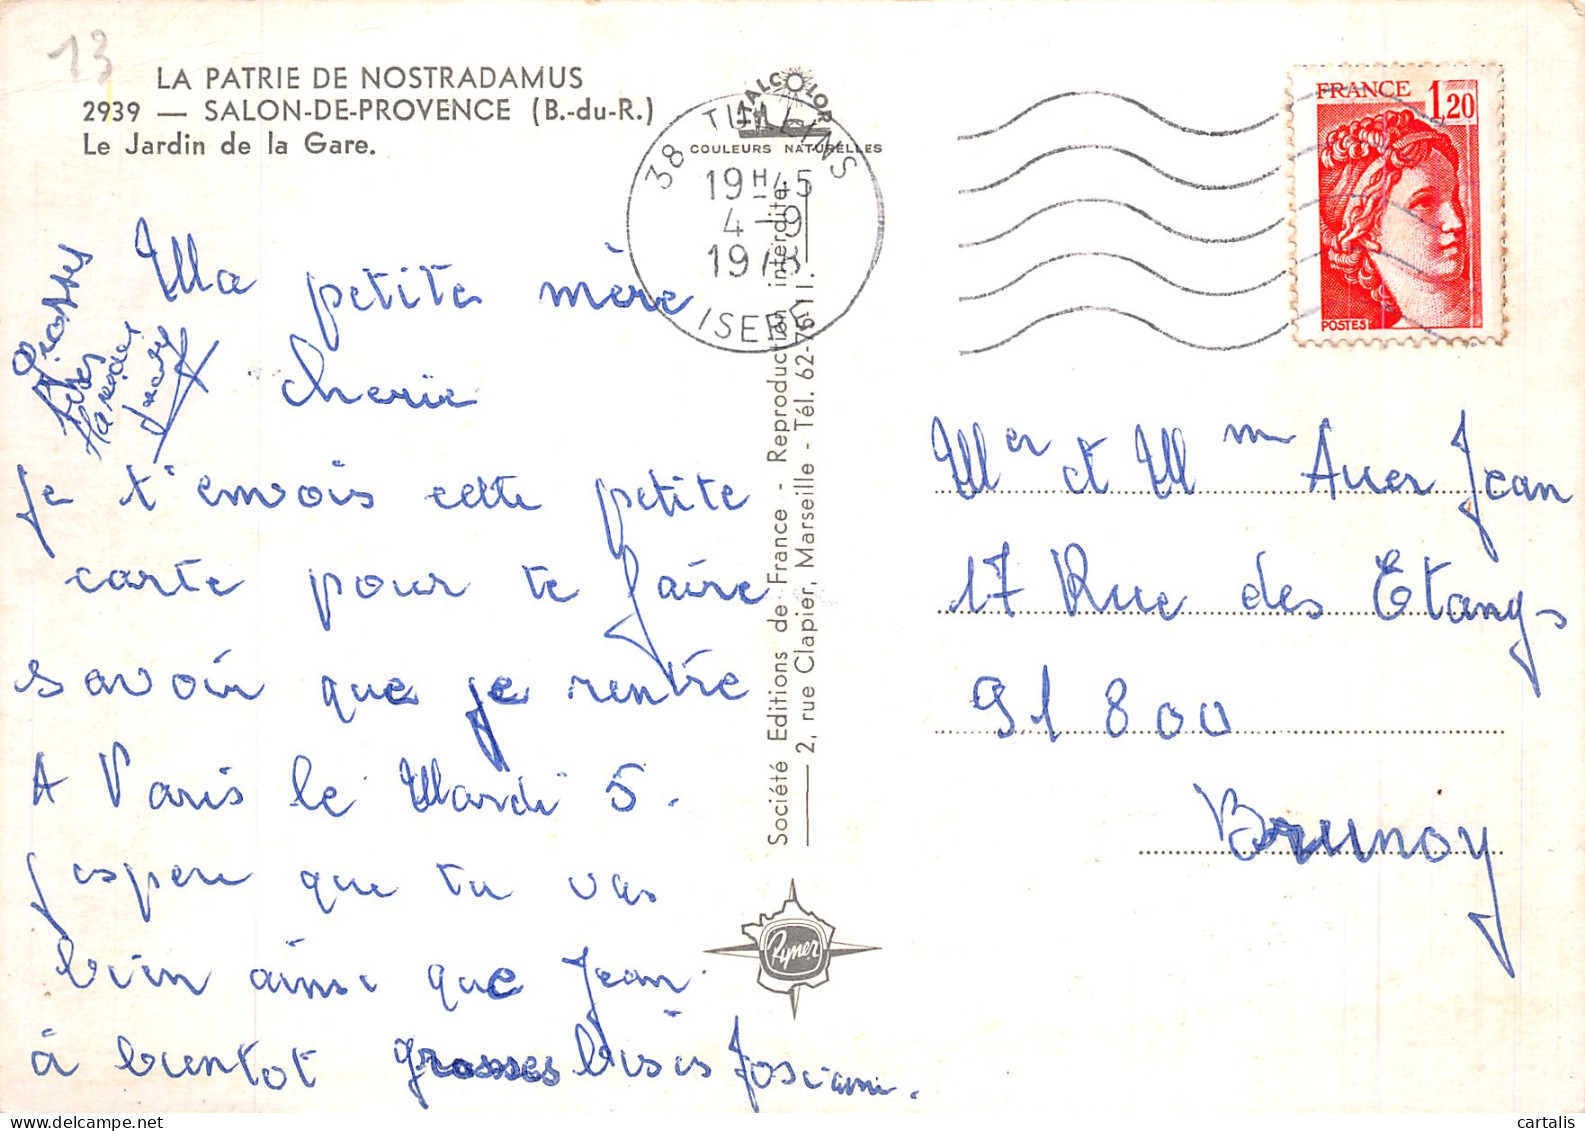 13
LA PATRIE DE NOSTRADAMUS
2939 — SALON-DE-PROVENCE (B.-du-R.)
Le Jardin de la Gare.
ITALCOLOR
COULEURS NATURELLES
38 TULLINS
19H45
4-9
1978
ISERE
FRANCE 1,20
POSTES
Ma petite mère
cherie
je t'envois cette petite
carte pour te faire
savoir que je rentre
A Paris le Mardi 5.
j'esperе que tu vas
bien ainsi que Jean
à bientot grosses bises Josiane.
Grosses
Société Editions de France - Reproduction interdite
2, rue Clapier, Marseille - Tél. 62-75-11.
Ryner
Mer et Mme Auer Jean
17 Rue des Etangs
91 800
Brunoy
cartalis